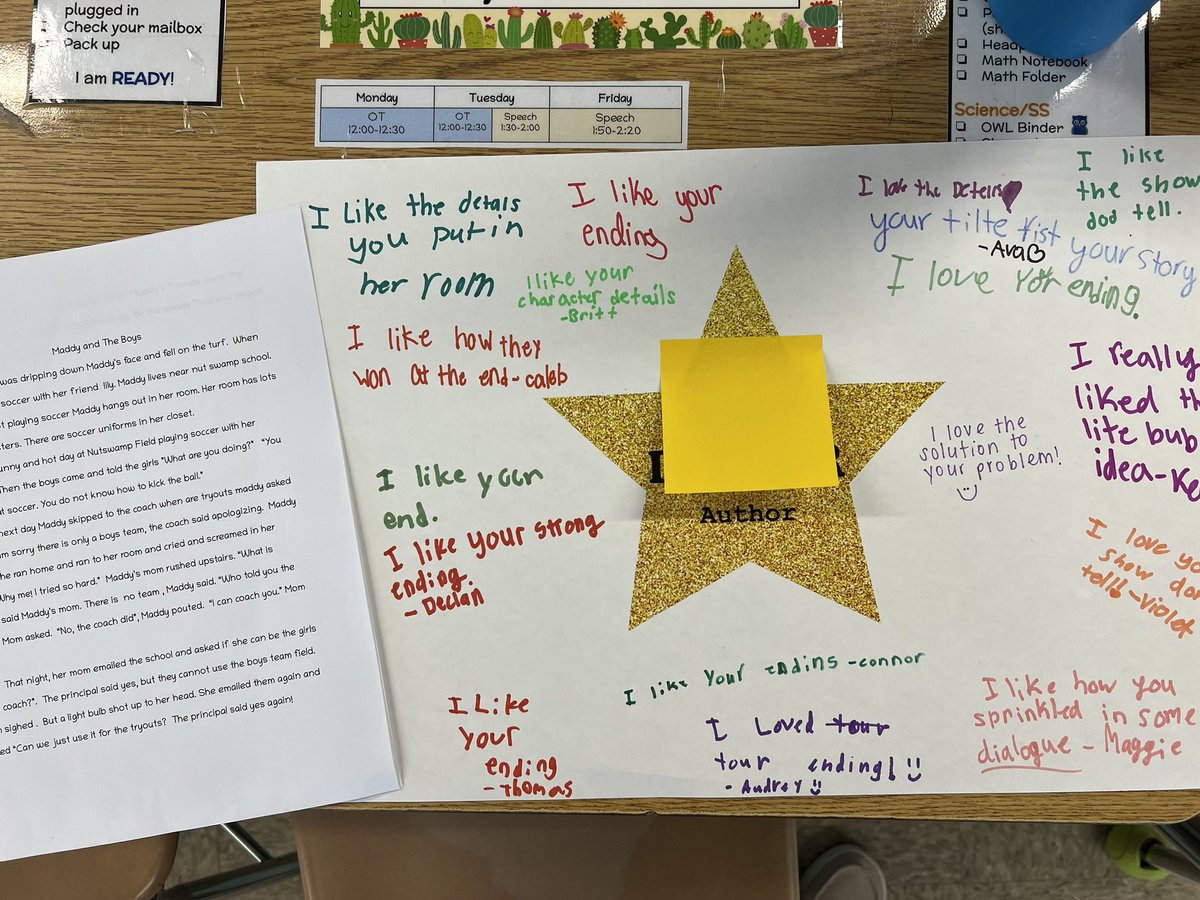 plugged in
Check your mailbox
Pack up
I am READY!
Monday Tuesday Friday
OT OT Speech Speech
12:00-12:30 12:00-12:30 1:30-2:00 1:50-2:20
Math Notebook
Math Folder
Science/SS
OWL Binder
Maddy and The Boys
was dripping down Maddy's face and fell on the turf. When
soccer with her friend lily. Maddy lives near nut swamp school.
playing soccer Maddy hangs out in her room. Her room has lots
There are soccer uniforms in her closet.
and hot day at Nutswamp Field playing soccer with her
the boys came and told the girls "What are you doing?" "You
at soccer. You do not know how to kick the ball."
next day Maddy skipped to the coach when are tryouts maddy asked
sorry there is only a boys team, the coach said apologizing. Maddy
ran home and ran to her room and cried and screamed in her
Why me! I tried so hard." Maddy's mom rushed upstairs. "What is
said Maddy's mom. There is no team, Maddy said. "Who told you the
Mom asked. "No, the coach did", Maddy pouted. "I can coach you." Mom
That night, her mom emailed the school and asked if she can be the girls
coach?". The principal said yes, but they cannot use the boys team field.
sighed. But a light bulb shot up to her head. She emailed them again and
"Can we just use it for the tryouts? The principal said yes again!
I Like the detais
you put in
her room
I like your
ending
I like your
character details
-Britt
I like how they
won at the end-caleb
I like your
end.
I like your strong
ending.
- Declan
I Like
your
ending
-Thomas
Author
I like your endins -connor
I Loved tour
tour ending!!
- Audrey
I love the
your tilte fist your story
-Ava
I love your ending.
I like
the show
dod tell.
I really
liked th
lite bub
idea-Ke
I love the
solution to
your problem!
I love yo
show don
tell -violet
I like how you
sprinkled in some
dialogue - Maggie